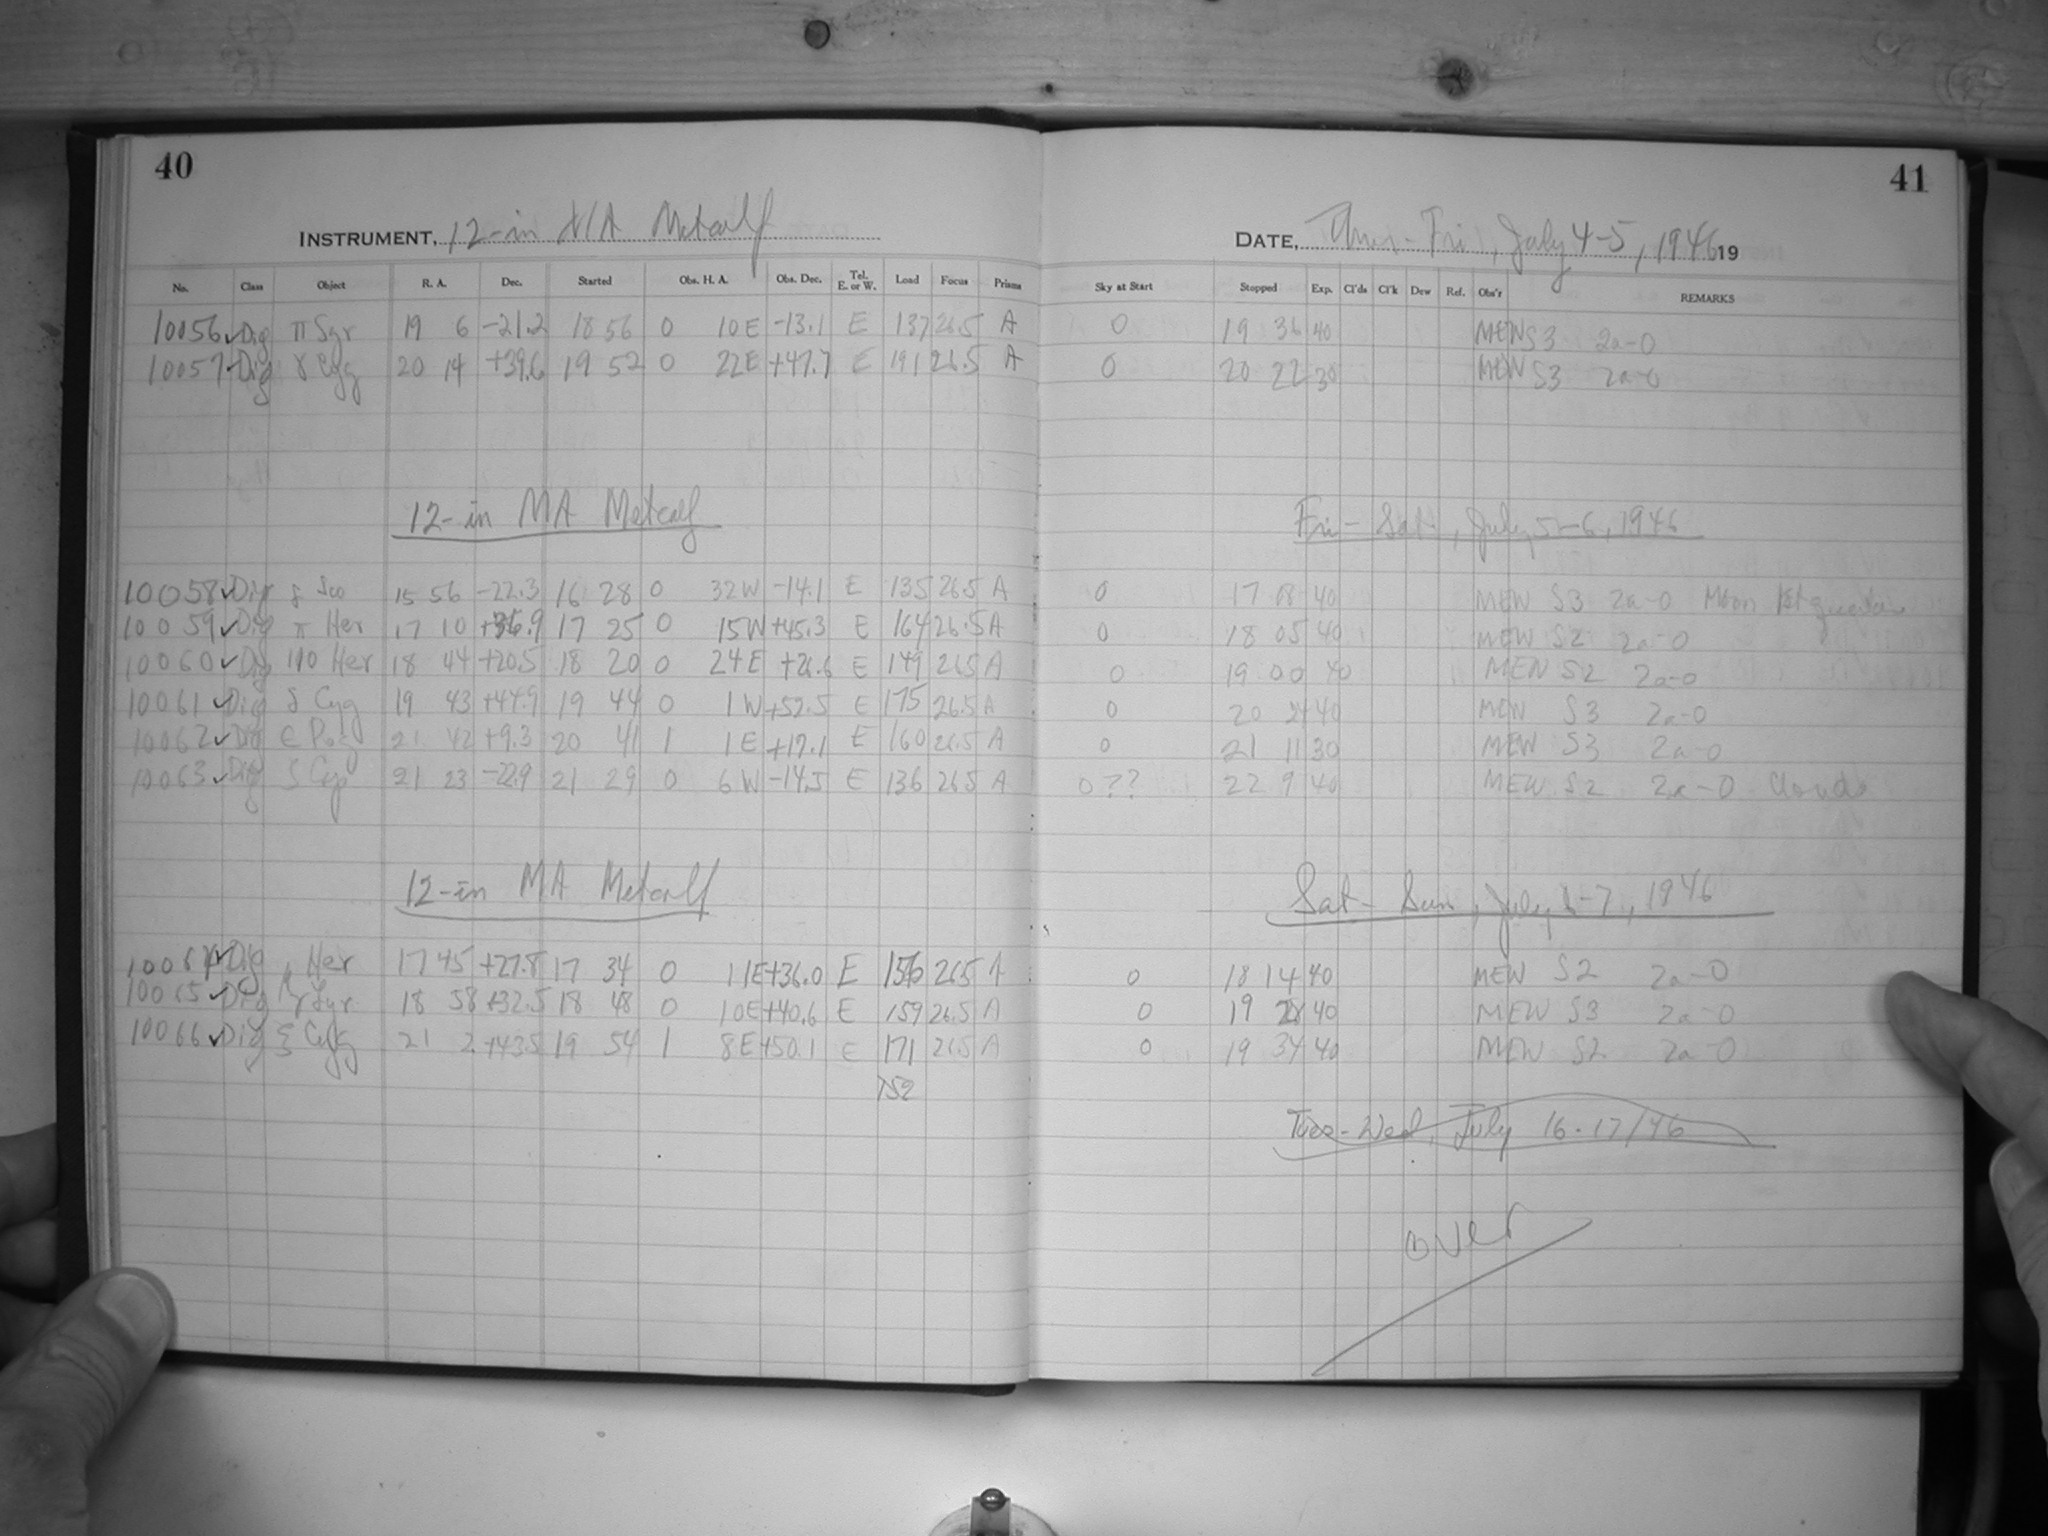 40
41
INSTRUMENT, 12-in MA Metcalf
DATE, Thur-Fri, July 4-5, 1946 19
No. Class Object R. A. Dec. Started Obs. H. A. Obs. Dec. Tel. E. or W. Load Focus Prisms Sky at Start Stopped Exp. Cl'ds Cl'k Dew Ref. Obs'r REMARKS
10056 ✓ Dig π Sgr 19 6 -21.2 18 56 0 10E -13.1 E 137 26.5 A 0 19 36 40 MEW S3 2a-0
10057 ✓ Dig γ Cyg 20 14 +39.6 19 52 0 22E +47.7 E 191 26.5 A 0 20 22 30 MEW S3 2a-0
12-in MA Metcalf
Fri-Sat, July 5-6, 1946
10058 ✓ Dig δ Sco 15 56 -22.3 16 28 0 32W -14.1 E 135 26.5 A 0 17 08 40 MEW S3 2a-0 Moon 1st quarter
10059 ✓ Dig π Her 17 10 +36.9 17 25 0 15W +45.3 E 164 26.5 A 0 18 05 40 MEW S2 2a-0
10060 ✓ Dig 110 Her 18 44 +20.5 18 20 0 24E +26.6 E 149 26.5 A 0 19 00 40 MEW S2 2a-0
10061 ✓ Dig δ Cyg 19 43 +44.9 19 44 0 1W +52.5 E 175 26.5 A 0 20 24 40 MEW S3 2a-0
10062 ✓ Dig ε Peg 21 42 +9.3 20 41 1 1E +17.1 E 160 26.5 A 0 21 11 30 MEW S3 2a-0
10063 ✓ Dig ζ Cap 21 23 -22.9 21 29 0 6W -14.5 E 136 26.5 A 0?? 22 9 40 MEW S2 2a-0 Clouds
12-in MA Metcalf
Sat-Sun, July 6-7, 1946
10064 ✓ Dig μ Her 17 45 +27.8 17 34 0 11E +36.0 E 156 26.5 A 0 18 14 40 MEW S2 2a-0
10065 ✓ Dig γ Lyr 18 58 +32.5 18 48 0 10E +40.6 E 159 26.5 A 0 19 28 40 MEW S3 2a-0
10066 ✓ Dig ξ Cyg 21 2 +43.5 19 54 1 8E +50.1 E 171 26.5 A 0 19 34 40 MEW S2 2a-0
752
Tues-Wed, July 16-17/46
over